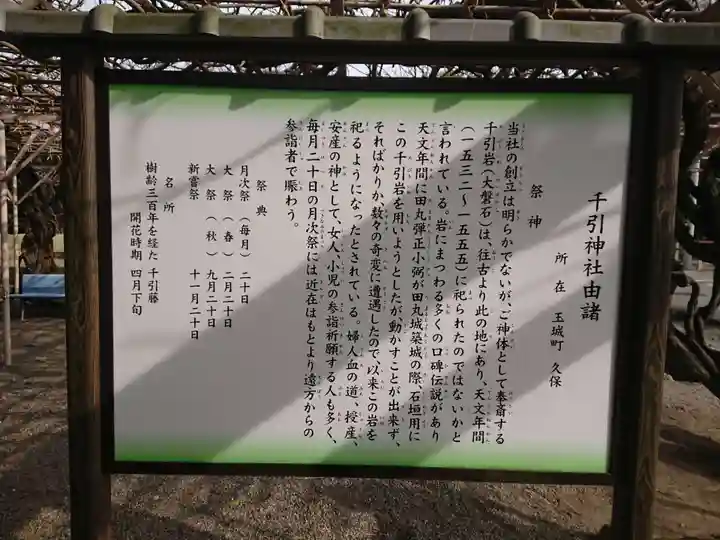 千引神社由諸
所在 玉城町 久保
祭神
当社の創立は明らかでないが、ご神体として奉斎する
千引岩(大磐石)は、往古より此の地にあり、天文年間
(一五三二〜一五五五)に祀られたのではないかと
言われている。岩にまつわる多くの口碑伝説があり
天文年間に田丸弾正小弼が田丸城築城の際、石垣用に
この千引岩を用いようとしたが、動かすことが出来ず、
そればかりか、数々の奇変に遭遇したので以来この岩を
祀るようになったとされている。婦人血の道、授産、
安産の神として、女人、小児の参詣祈願する人も多く、
毎月二十日の月次祭には近在はもとより遠方からの
参詣者で賑わう。
祭典
月次祭(毎月)二十日
大祭(春)二月二十日
大祭(秋)九月二十日
新嘗祭 十一月二十日
名所
樹齢三百年を経た 千引藤
開花時期 四月下旬